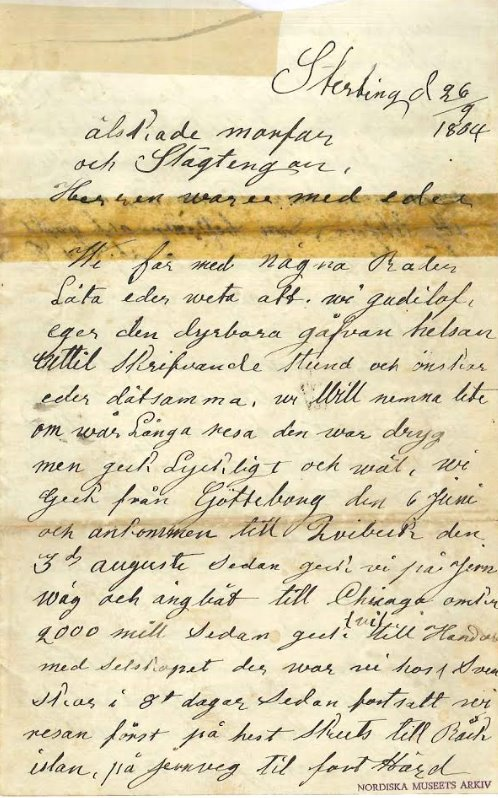 Sterling d 26/9
1864
älskade morfar
och Slägtengar,
Herren ware med eder
Wi får med några Rader
Låta eder weta att. wi gudilof,
eger den dyrbara gåfvan helsan
intill skrifvande stund och önskar
eder dätsamma, wi Will nemna lite
om wår Långa resa den war dryg
men geck Lyckligt och wäl, wi
Geck från Götteborg den 6 Juni
och ankommen till Qvibeck den
3d auguste sedan geck vi på Jern
wäg och ångbåt till Chicago omkr
2000 mill sedan geck vi till
med selskapet der war vi hos Sven
skar i 8t dagar sedan fortsatt wi
resan först på hest skuts till Råck
islan, på jernveg til fort Hård
NORDISKA MUSEETS ARKIV